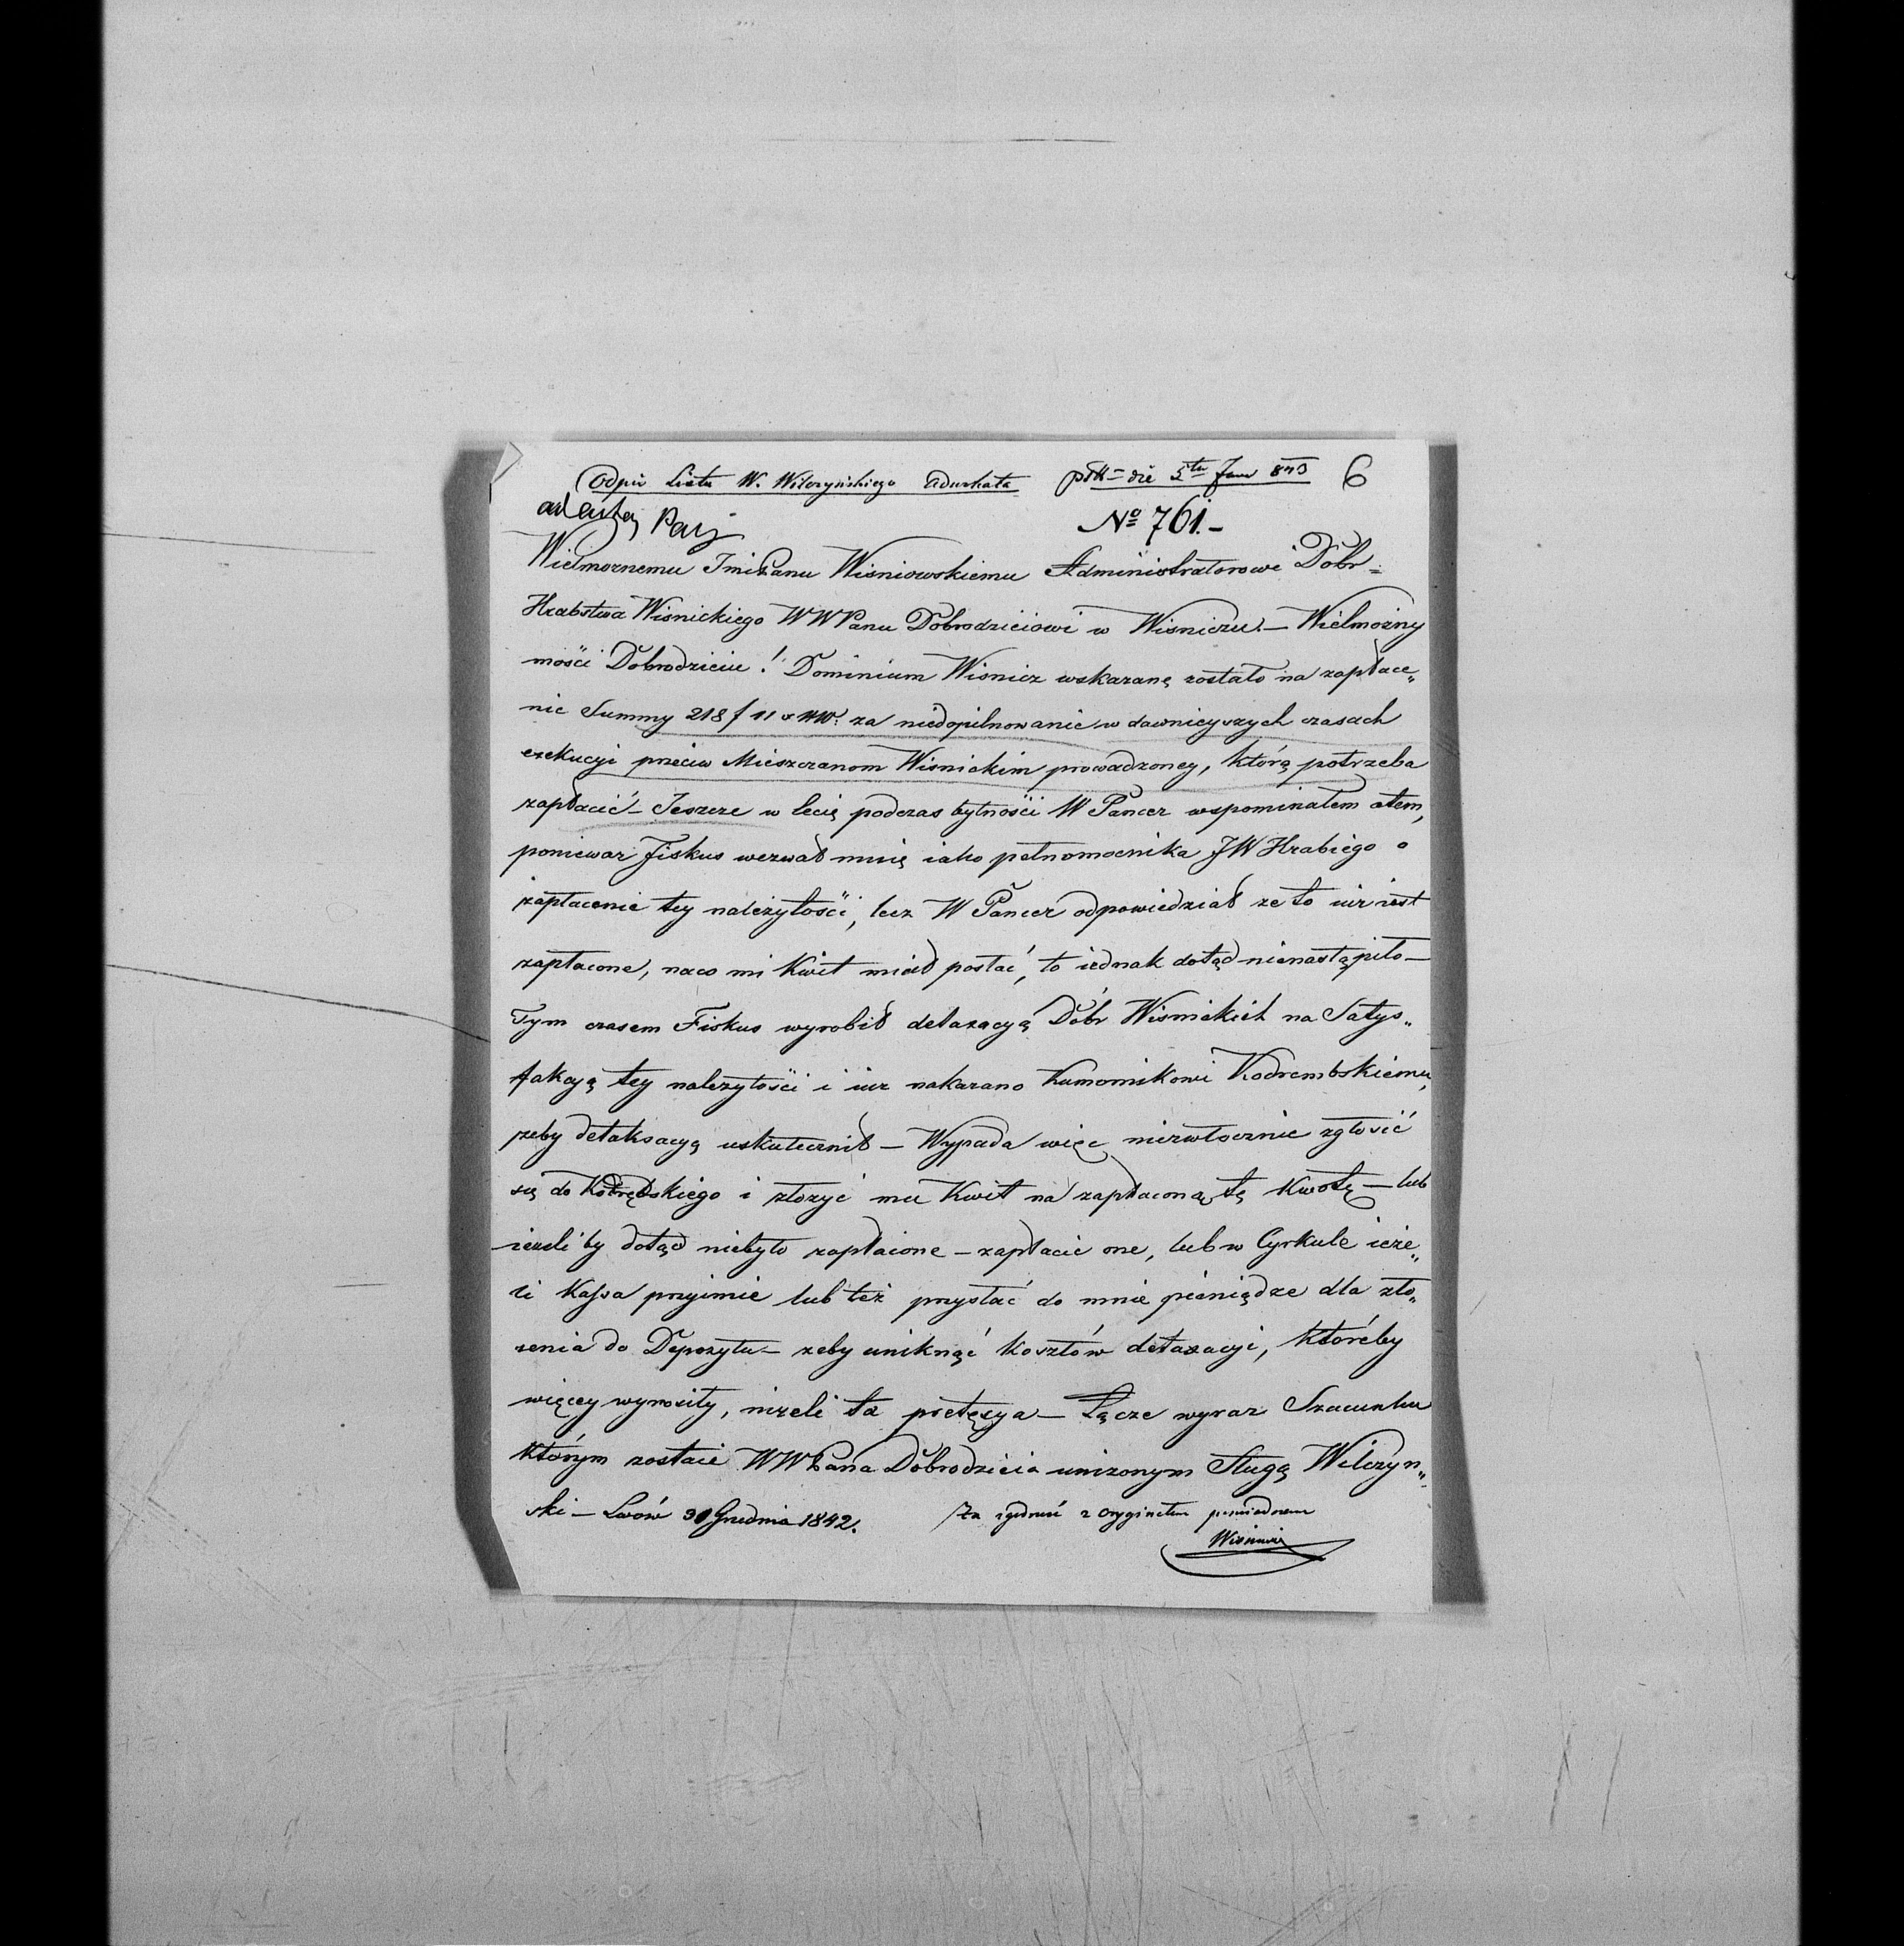 Odpis Listu W. Wilczyńskiego Adwokata die 5ta Janu 843 6
No 761.-
Wielmożnemu Jmć Panu Wisniowskiemu Administratorowi Dobr=
Hrabstwa Wisnickiego WWPanu Dobrodzieiowi w Wisniczu. — Wielmożny
mości Dobrodzieiu! Dominium Wisnicz wskazanę zostało na zapłace„
nie Summy 218 f 11 x za niedopilnowanie w dawnieyszych czasach
exekucyi przeciw Mieszczanom Wisnickim prowadzoney, którą potrzeba
zapłacić — Jeszcze w lecię podczas bytności W Pancer wspominałem otem,
poniewaz Fiskus wezwał mnię iako pełnomocnika JW Hrabiego o
zapłacenie tey należytości, lecz W Pancer odpowiedział ze to iuz iest
zapłacone, naco mi Kwit miał posłać, to iednak dotąd nienastąpiło —
Tym czasem Fiskus wyrobił detaxacyą Dóbr Wisnickich na Satys„
fakcyą tey nalezytości i iuz nakazano Komornikowi Kodrembskiemu,
zeby detaksacyą uskutecznił — Wypada więc niezwłocznie zgłosić
się do Kodrębskiego i złozyć mu Kwit na zapłaconą tę kwotę — lub
iezeli by dotąd niebyło zapłacone — zapłacić one, lub w Cyrkule ieże„
li Kassa przyimie lub też przysłać do mnie pieniądze dla zło„
zenia do Depozytu — zeby uniknąć kosztów detaxacyi, któreby
więcey wynosiły, niżeli ta pretęsya — Łącze wyraz Szacunku
którym zostaie WWPana Dobrodzieia unizonym Sługą Wilczyn„
ski — Lwów 31 Grudnia 1842. Za zgodność z Oryginałem poswiadczam